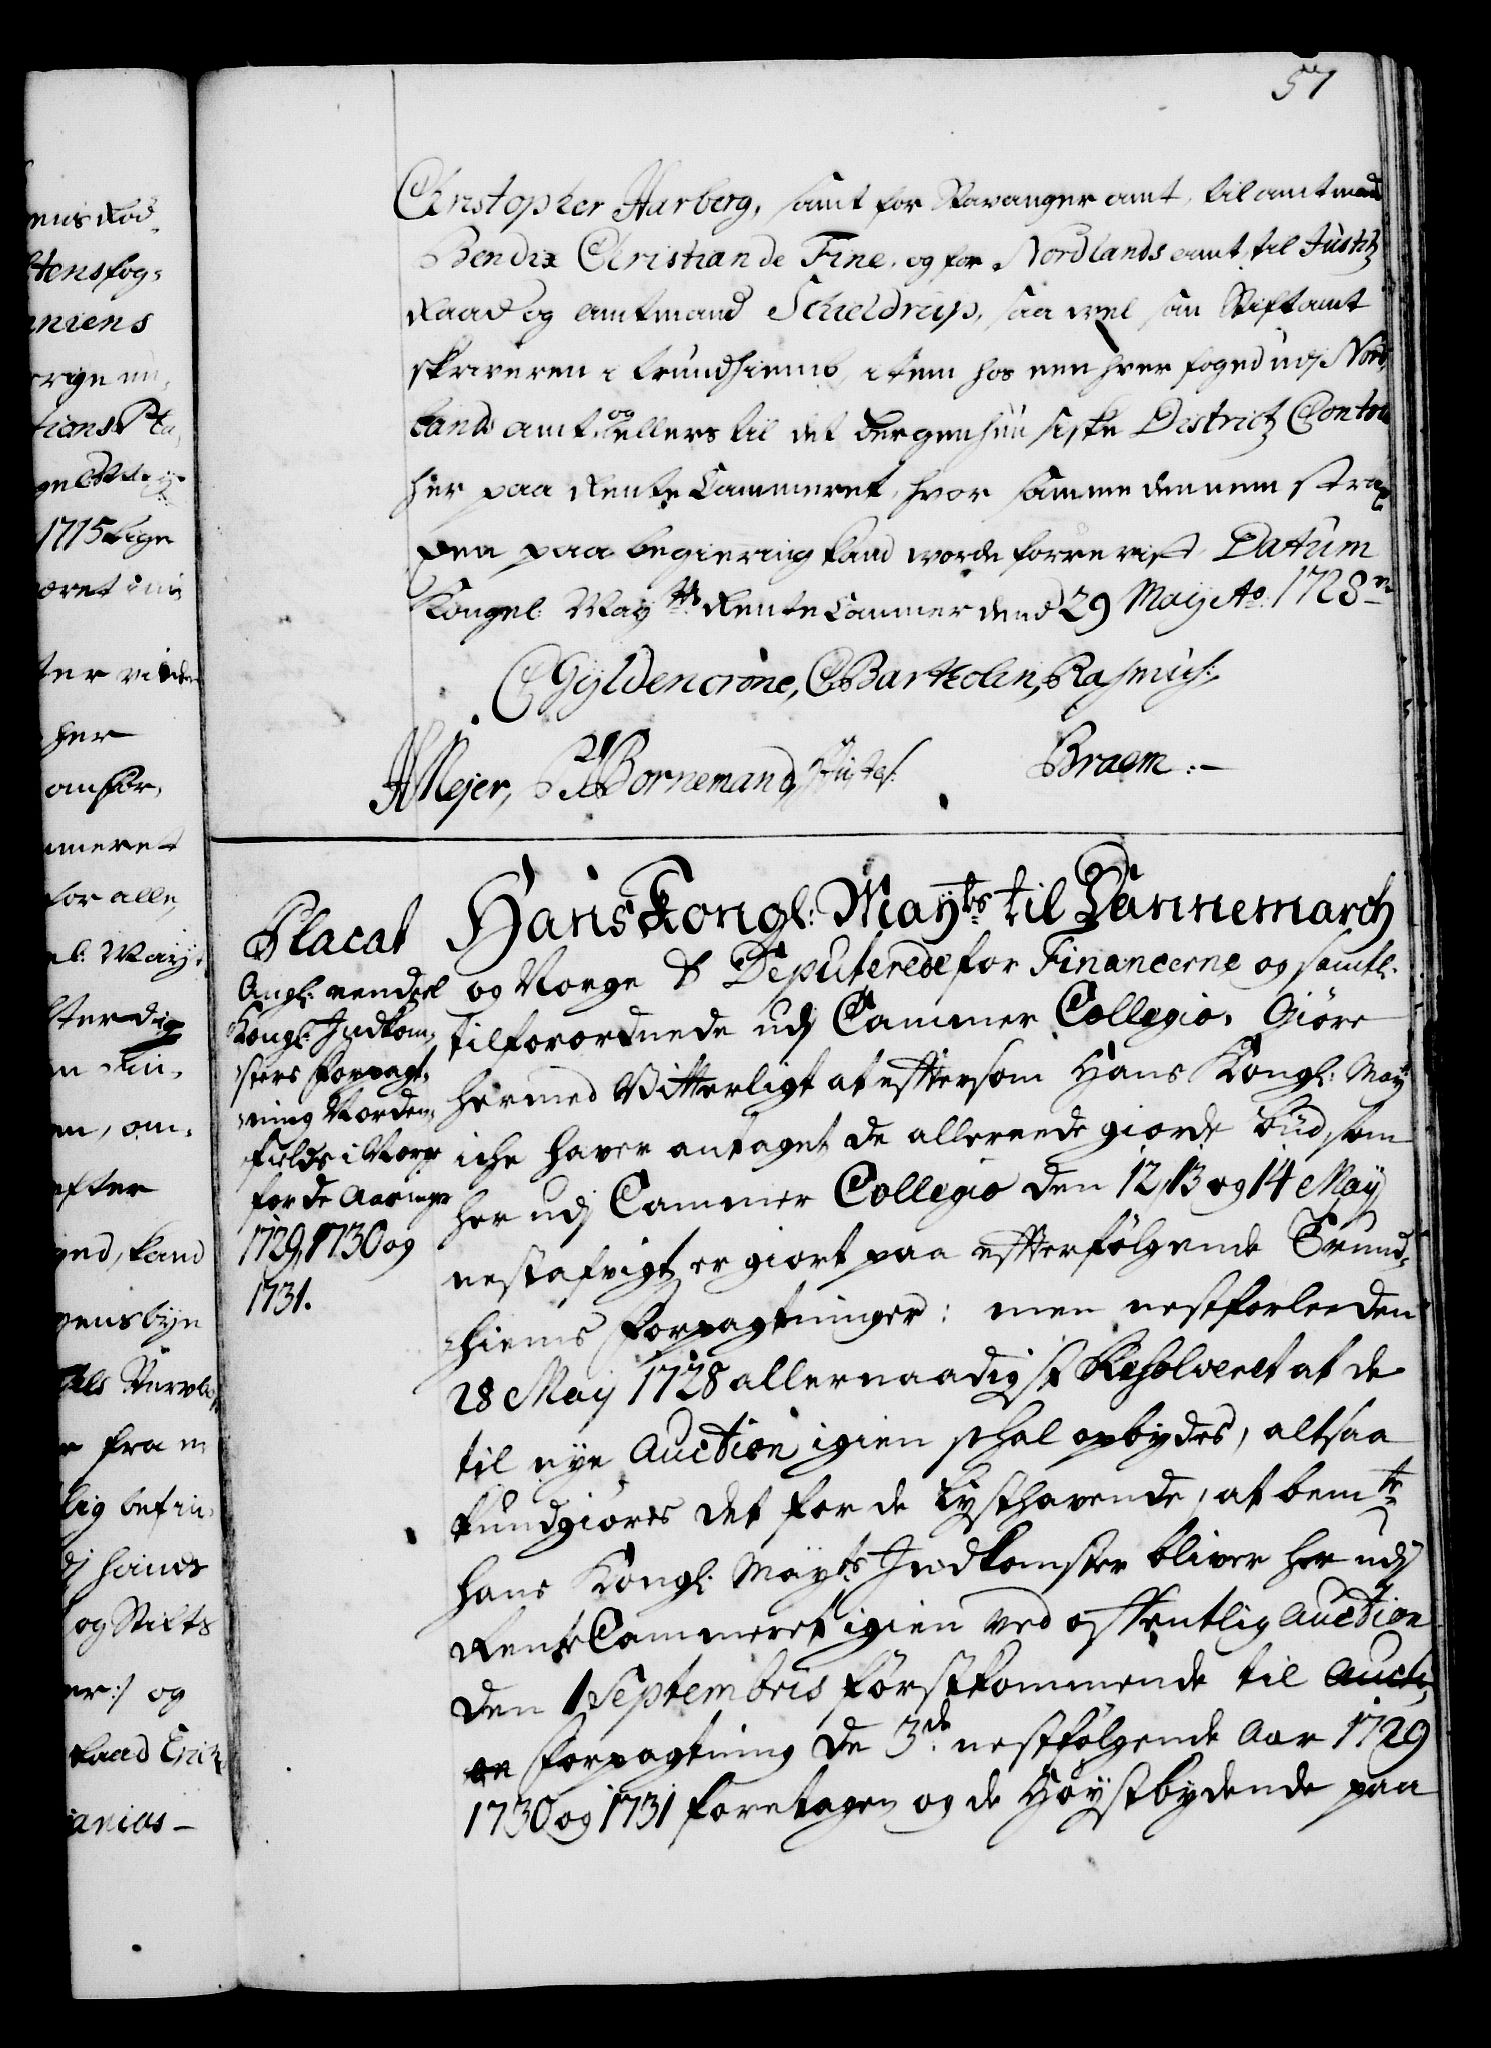 57
Christopher Aarberg, samt for Stavanger amt, til amtmand
Bendix Christian de Fine, og for Nordlands amt, til Justitz
Raad og amtmand Scheldrup, saa vel som Stiftamt
skriveren i Trundhiemb, item hos een hver foged udj Nord,
lands amt, og ellers til det Bergenhuusiske Districtz Contoir
her paa Rente Cammeret, hvor samme dennem strax
den paa begiering kand worde forrevist Datum
Kongel: May.tts Rente Cammer dend 29 Maij Ao. 1728
C Gyldencrone, C Bartholin, Rasmus:
H Mejer, P Bornemand,
Braem :-
Placat
Angl: vendeel
Kongl: Indkom,
sters forpagt,
ning Norden,
fields i Norge
for de Aaringer
1729, 1730 og
1731.
Hans Kongl: Mayts til Dannemarch
og Norge & Deputerede for Financerne og samtl:
tilforordnede udj Cammer Collegio, Giöre
hermed Vitterligt at eftersom Hans Kongl: May
iche haver antaget de allereede giorde bud, som
her udj Cammer Collegio den 12, 13 og 14 Maij
nestafvigt er giort paa effterfölgende Trund,
hiems forpagtninger: men nestforleeden
28 Maij 1728 allernaadigst Resolveret at de
til nye Auction igien schal opbydes, altsaa
kundgiöres det for de Lysthavende, at bemte
hans Kongl: Mayts Indkomster bliver her udj
Rente Cammeret igien ved offentlig Auction
den 1 Septembris förstkommende til Aucti,
on forpagtning de 3de nestfölgende Aar 1729
1730 og 1731 foretagen og de Höystbydende paa